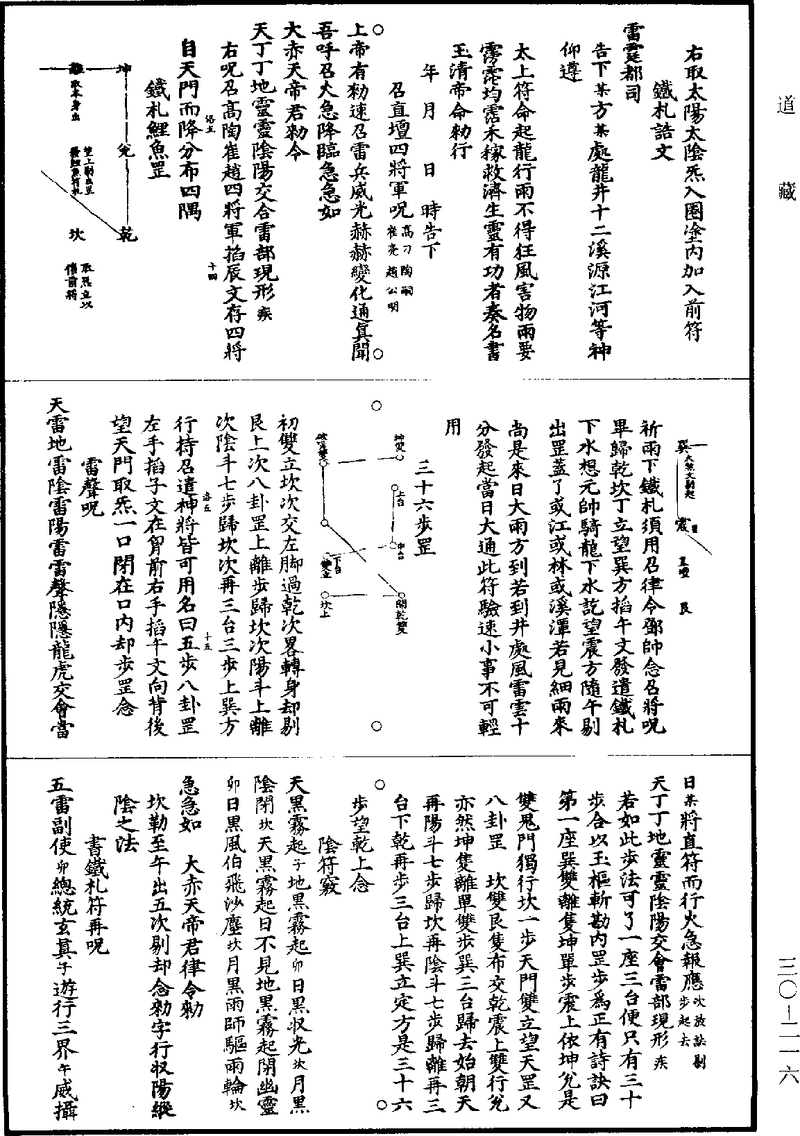 道藏
右取太陽太陰炁入圈塗內加入前符
鐵札誥文
雷霆都司
告下某方某處龍井十二溪源江河等神
仰遵
太上符命起龍行雨不得狂風害物雨要
霶霈均霑禾稼救濟生靈有功者奏名書
玉清帝命勑行
年月 日 時告下
召直壇四將軍呪高刁 陶嗣 崔亮 趙公明
上帝有勑速召雷兵威光赫赫變化通真聞
吾呼召火急降臨急急如
大赤天帝君勑令
天丁丁地靈靈陰陽交合雷部現形疾
右呪召高陶崔趙四將軍掐辰文存四將
自天門而降分布四隅
洛五
十四
鐵札鯉魚罡
坤 兌 乾
離
坎
取炁立以
巽
震
艮
祈雨下鐵札須用召律令鄧帥念召將呪
畢歸乾坎丁立望巽方掐午文發遣鐵札
下水想元帥騎龍下水訖望震方隨午剔
出罡蓋了或江或林或溪潭若見細雨來
尚是來日大雨方到若到井處風雷雲十
分發起當日大通此符驗速小事不可輕
用
三十六步罡
坤雙
上台
中台
下台
坎上
初雙立坎次交左脚過乾次畧轉身却剔
艮上次八卦罡上離步歸坎次陽斗上離
次陰斗七步歸坎次再三台三步上巽方
行持召遣神將皆可用名曰五步八卦罡
洛五
十五
左手掐子文在胷前右手掐午文向背後
望天門取炁一口閉在口內却步罡念
雷聲呪
天雷地雷陰雷陽雷雷聲隱隱龍虎交會當
日某將直符而行火急報應次放訣剔步起去
天丁丁地靈靈陰陽交會雷部現形疾
若如此步法可了一座三台便只有三十
步合以玉樞斬勘內罡步爲正有詩訣曰
第一座巽雙離隻坤單步震上依坤兌是
雙鬼門獨行坎一步天門雙立望天罡又
八卦罡 坎雙艮隻布交乾震上雙行兌
亦然坤隻離單雙步巽三台歸去始朝天
再陽斗七步歸坎再陰斗七步歸離再三
台下乾再步三台上巽立定方是三十六
步望乾上念
陰符竅
天黑霧起子地黑霧起卯日黑收光坎月黑
陰閉坎天黑霧起日不見地黑霧起閉幽靈
卯日黑風伯飛沙塵坎月黑雨師驅雨輪坎
急急如 大赤天帝君律令勑
坎勒至午出五次剔却念勑字行收陽縱
陰之法
書鐵札符再呪
五雷副使卯總統玄真子遊行三界午威攝
三〇—二一六